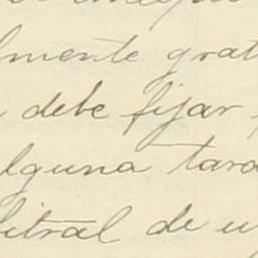 lmente grat
debe fijar
lguna tard
litral de u